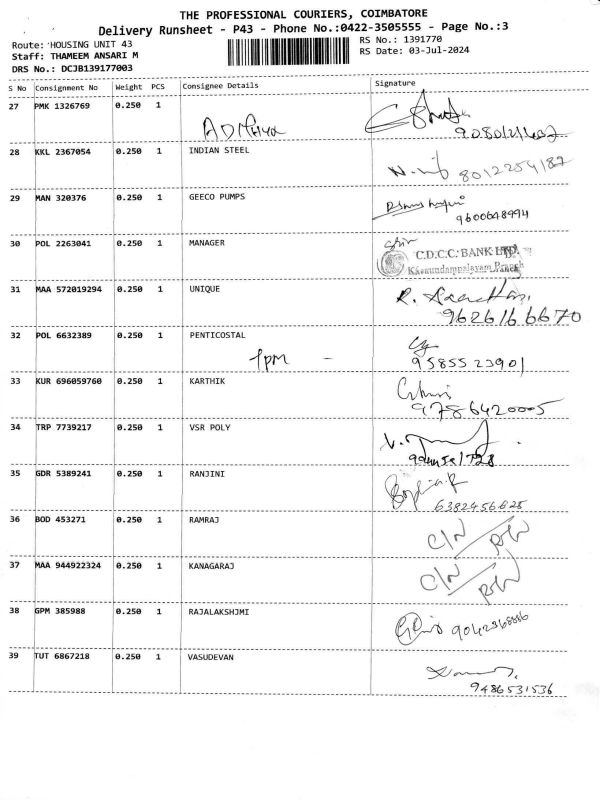 THE PROFESSIONAL COURIERS, COIMBATORE
Delivery Runsheet - P43 - Phone No.:0422-3505555 - Page No.:3
Route: HOUSING UNIT 43
RS No.: 1391770
Staff: THAMEEM ANSARI M
RS Date: 03-Jul-2024
DRS No.: DCJB139177003
S No Consignment No Weight PCS Consignee Details Signature
27 PMK 1326769 0.250 1
28 KKL 2367054 0.250 1 INDIAN STEEL
8012254187
29 MAN 320376 0.250 1 GEECO PUMPS
9600648994
30 POL 2263041 0.250 1 MANAGER
C.D.C.C. BANK LTD.
31 MAA 572019294 0.250 1 UNIQUE
9626166670
32 POL 6632389 0.250 1 PENTICOSTAL
1pm -
9585523901
33 KUR 696059760 0.250 1 KARTHIK
9786420005
34 TRP 7739217 0.250 1 VSR POLY
35 GDR 5389241 0.250 1 RANJINI
6382456825
36 BOD 453271 0.250 1 RAMRAJ
C/N
37 MAA 944922324 0.250 1 KANAGARAJ
C/N
38 GPM 385988 0.250 1 RAJALAKSHJMI
39 TUT 6867218 0.250 1 VASUDEVAN
9486531536